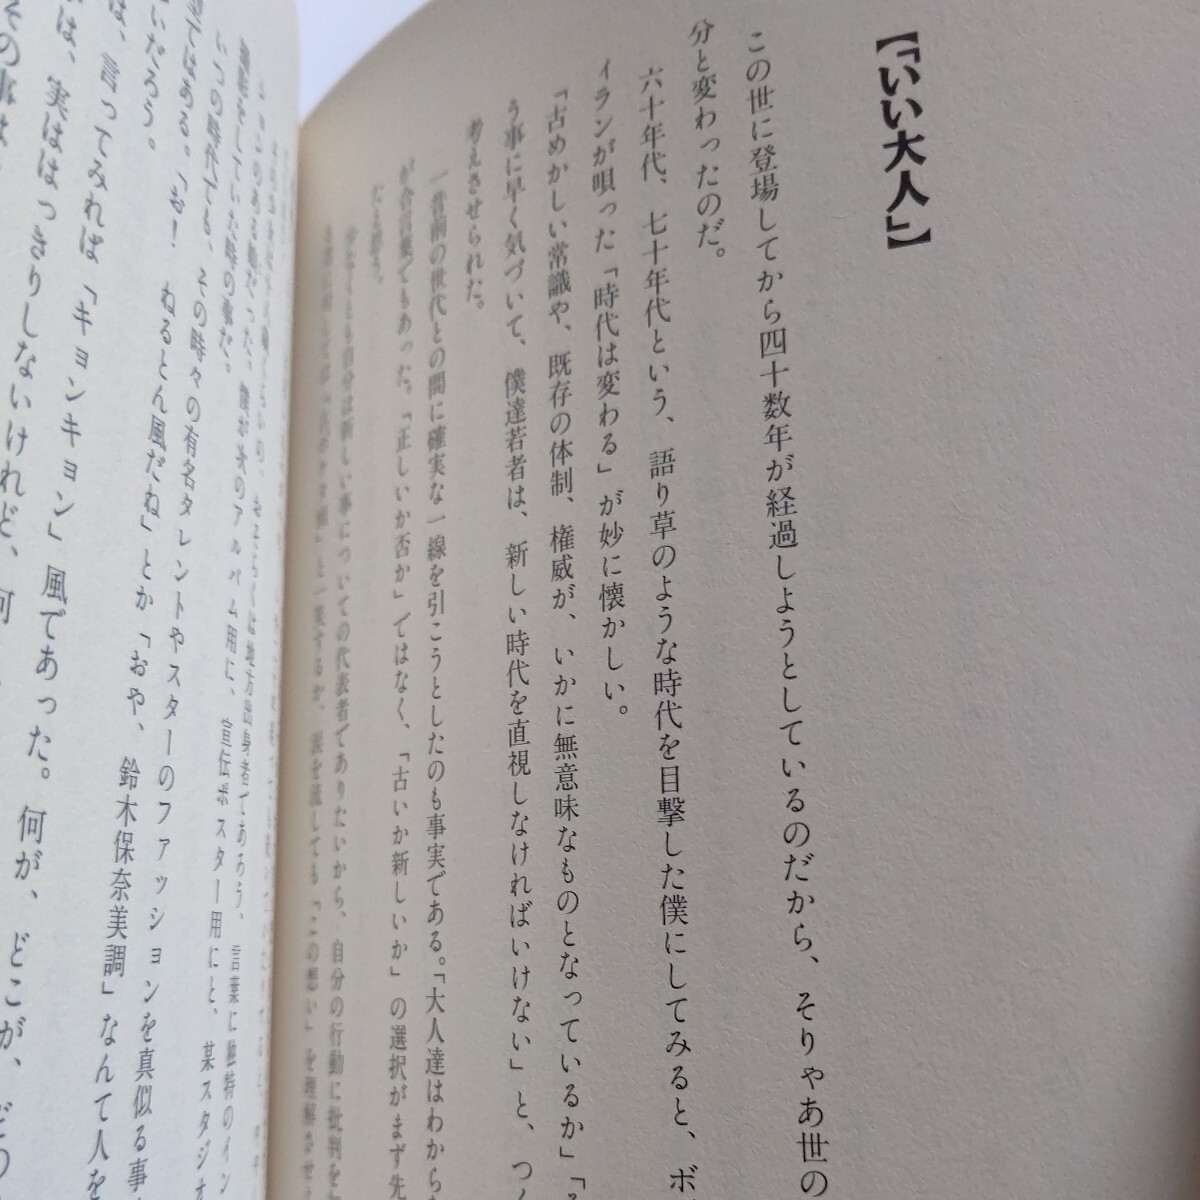 【「いい大人」】
この世に登場してから四十数年が経過しようとしているのだから、そりゃあ世の
分と変わったのだ。
六十年代、七十年代という、語り草のような時代を目撃した僕にしてみると、ボ
ィランが唄った「時代は変わる」が妙に懐かしい。
「古めかしい常識や、既存の体制、権威が、いかに無意味なものとなっているか」「
う事に早く気づいて、僕達若者は、新しい時代を直視しなければいけない」と、つく
考えさせられた。
一昔前の世代との間に確実な一線を引こうとしたのも事実である。「大人達はわから
が合言葉でもあった。「正しいか否か」ではなく、「古いか新しいか」の選択がまず先
だと思う。
少なくとも自分は新しい事についての代表者でありたいから、自分の行動に批判を
と一笑するか、涙を流しても「この想い」を理解させ
のある娘だった。僕が次のアルバム用に、宣伝ポスター用にと、某スタジオ
撮影をしていた時の事だ。
いつの時代でも、その時々の有名タレントやスターのファッションを真似る事
ではある。「お！ ねるとん風だね」とか「おや、鈴木保奈美調」なんて人を
いだろう。
は、言ってみれば「キョンキョン」風であった。何が、どこが、ど
は、実ははっきりしないけれど、何
その事は